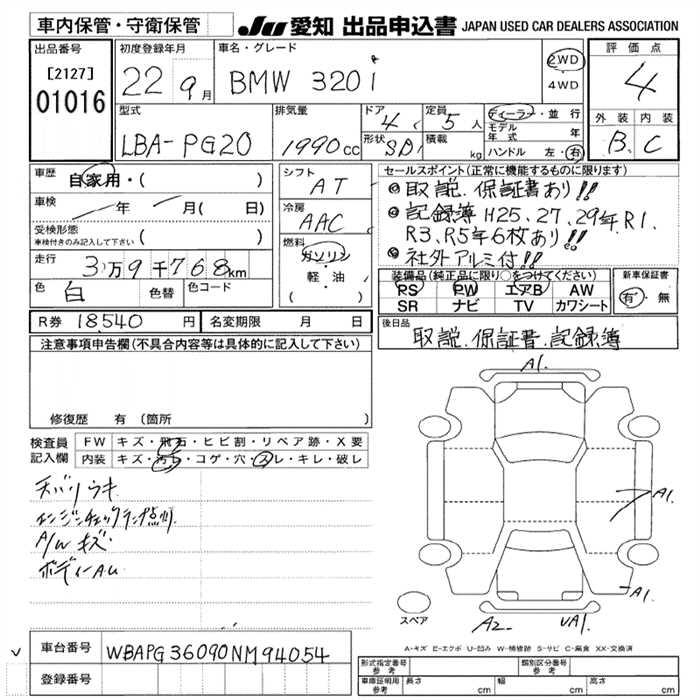 車内保管・守衛保管
JU 愛知 出品申込書 JAPAN USED CAR DEALERS ASSOCIATION
出品番号
[2127]
01016
初度登録年月
22 9月
車名・グレード
BMW 320i
2WD
4WD
評価点
4
外装 内装
B C
型式
LBA-PG20
排気量
1990cc
ドア
4
定員
5人
形状
SD
積載
kg
ディーラー・並行
モデル年式 年
ハンドル 左・右
車歴
自家用・( )
車検
年 月( 日)
受検形態
車検付きのみ記入して下さい ( )
走行
3万9千768km
色
白
色替
色コード
シフト
AT
冷房
AAC
燃料
ガソリン
・
軽・油
( )
セールスポイント(正常に機能するものに限ります)
◎取説、保証書あり!!
◎記録簿H25、27、29年、R1、
R3、R5年6枚あり!!
◎社外アルミ付!!
装備品(純正品に限り○をつけてください)
PS PW エアB AW
SR ナビ TV カワシート
新車保証書
有・無
R券 18540円
名変期限 月 日
後日品
取説、保証書、記録簿
注意事項申告欄(不具合内容等は具体的に記入して下さい)
修復歴 有(箇所 )
検査員
記入欄
FW キズ・飛石・ヒビ割・リペア跡・X要
内装 キズ・汚れ・コゲ・穴・スレ・キレ・破レ
天バリウキ
エンジンチェックランプ点灯
A/Wキズ
ボディーAU
A1.
A1.
A1.
A2 UA1.
スペア
A-キズ E-エクボ U-凹み W-補修跡 S-サビ C-腐食 XX-交換済
車台番号
WBAPG36090NM94054
登録番号
形式指定番号
参考
類別区分番号
参考
車庫証明用
参考
長さ cm
幅 cm
高さ cm